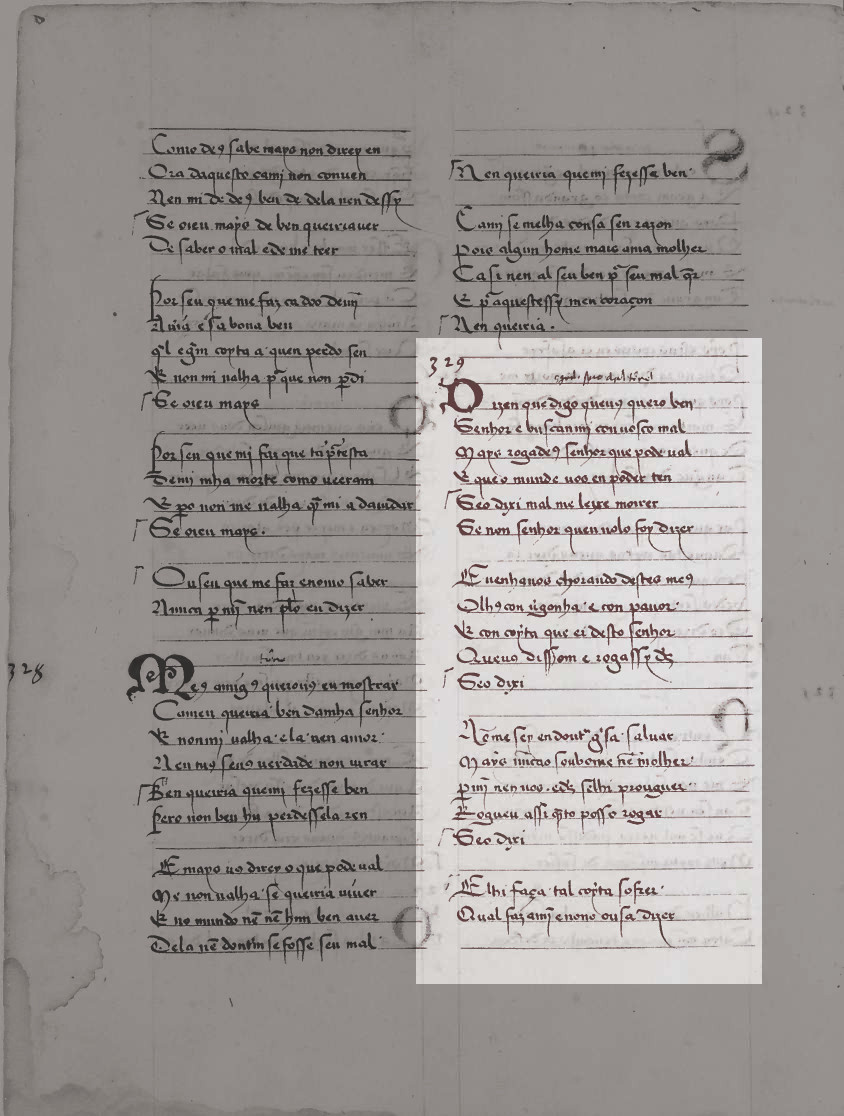 Como de9 sabe mays non direy en
Ora daquesto cami non conuen
Nen mi de de9 ben de dela nen dessy
Se oieu mays de ben queiriauer
De saber o mal e de me teer
Por seu que me faz ca doo demĩ
e sa bona ben
q̃l coyta a quen perdo sen
E non mi ualha p̃ que non ꝑdi
Se oieu mays
Por sen que mi faz que
Demi mha morte como ueeram
E ꝑo non me ualha q̃ mi a dauidar
Se oieu mays.
Ou seu que me faz enomo saber
Nunca ꝑ mĩ nen eu dizer
328
Me9 amig9 querou9 eu mostrar
Cameu queiria ben damha senhor
E nonmi ualha ela nen amor
Nen me9 sen9 uerdade non uirar
Ben queiria quemi fezesse ben
Pero non ben hu perdessela ren
E mays uo direy o que pode ual
Me non ualha se queiria uiuer
E no mundo nẽ nẽ hũn ben auer
Dela nẽ dontrm se fosse seu mal
Nen queiria quemi fezesse ben
Cami semelha cousa sen razon
Pois algun home mais ama molher
Ca si nen al seu ben p̃ seu mal q̃r
E p̃ aquestessy meu coraçon
Nen queiria.
329
Dizen que digo queu9 quero ben
Senhor e buscanmi conuosco mal
Mays rogade9 senhor que pode ual
E que o mundo uos en poder ten
Seo dixi mal me leyxe morrer
Se non senhor quen uolo foy dizer
E uenhauos chorando destes me9
Olh9 con ũgonha e con pauor
E con coyta que ei desto senhor
Queu9 dissom e rogassy d̃s
Seo dixi
Nõme sey endoutra g̃sa saluar
Mays nũcao soubome nẽ molher
ꝑ mĩ nen uos ed̃s selhi prouguer
Rogueu assi q̃to posso rogar
Seo dixi
E lhi faça tal coyta sofrer
Qual faz amĩ enono ousa dizer